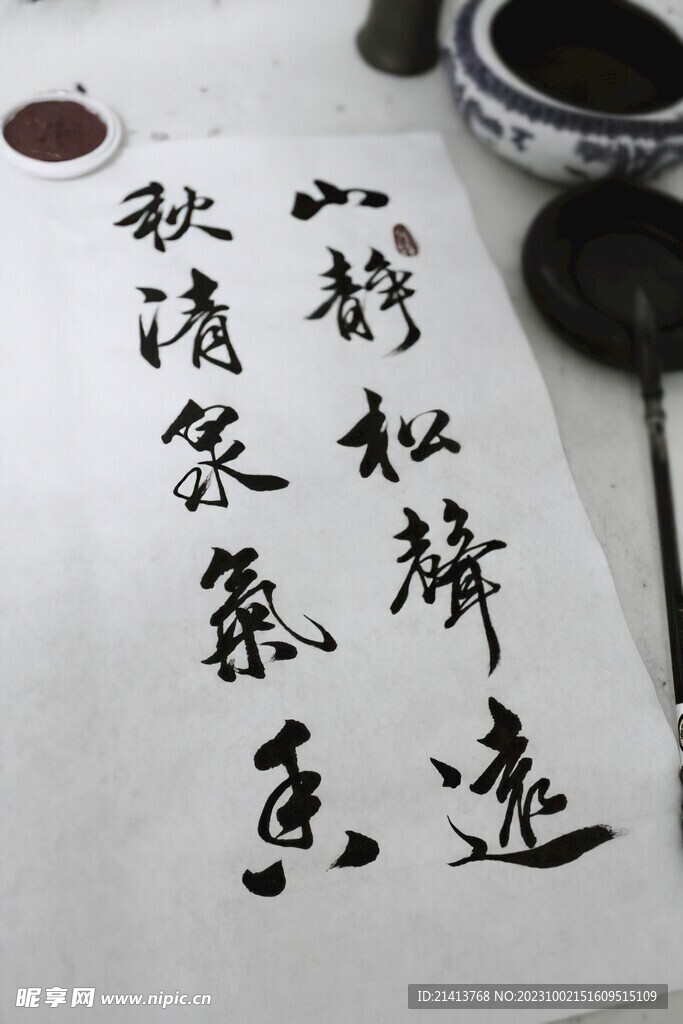 山静松聲遠
秋清泉氣香
昵享网 www.nipic.cn
ID:21413768 NO:20231002151609515109